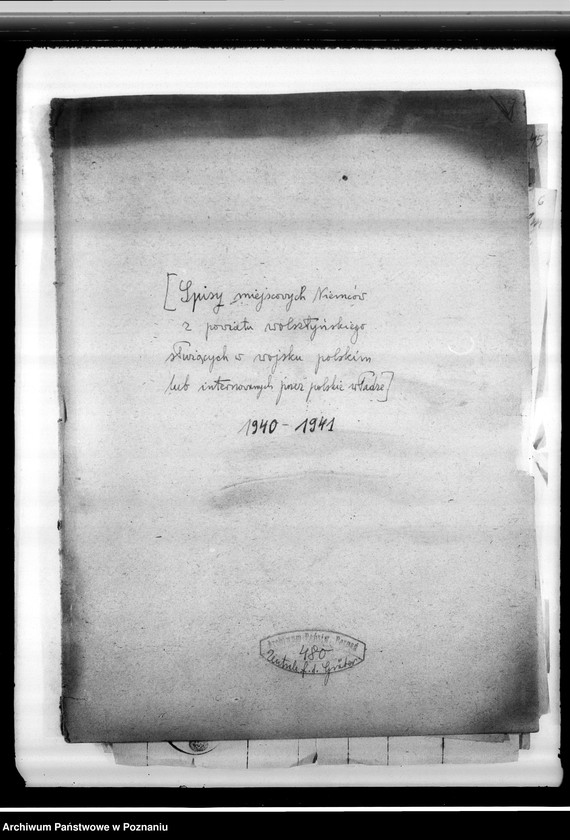 [Spisy miejscowych Niemców
z powiatu wolsztyńskiego
służących w wojsku polskim
lub internowanych przez polskie władze]
1940-1941
Archiwum Państw. Poznań
480
Archiwum Państwowe w Poznaniu